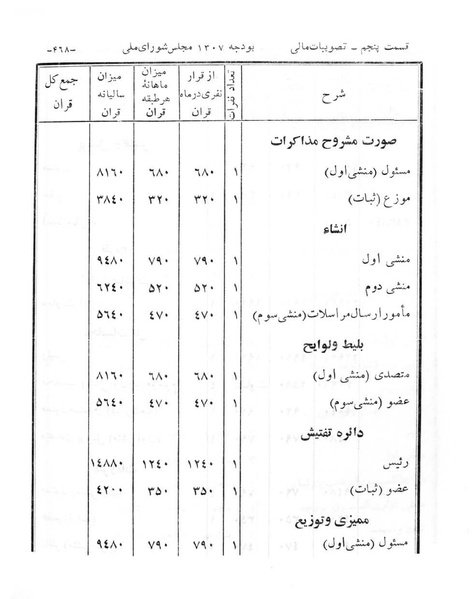 قسمت پنجم ـ تصویبات مالی بودجه ۱۳۰۷ مجلس شورای ملی -۴۶۸-
شرح تعداد نفرات از قرار نفری در ماه قران میزان ماهانهٔ هر طبقه قران میزان سالیانه قران جمع کل قران
صورت مشروح مذاکرات
مسئول (منشی اول) ۱ ۶۸۰ ۶۸۰ ۸۱۶۰
موزع (ثبات) ۱ ۳۲۰ ۳۲۰ ۳۸٤۰
انشاء
منشی اول ۱ ۷۹۰ ۷۹۰ ۹٤۸۰
منشی دوم ۱ ۵۲۰ ۵۲۰ ۶۲٤۰
مأمور ارسال مراسلات (منشی سوم) ۱ ٤۷۰ ٤۷۰ ۵۶٤۰
بلیط ولوایح
متصدی (منشی اول) ۱ ۶۸۰ ۶۸۰ ۸۱۶۰
عضو (منشی سوم) ۱ ٤۷۰ ٤۷۰ ۵۶٤۰
دائره تفتیش
رئیس ۱ ۱۲٤۰ ۱۲٤۰ ۱٤۸۸۰
عضو (ثبات) ۱ ۳۵۰ ۳۵۰ ٤۲۰۰
ممیزی وتوزیع
مسئول (منشی اول) ۱ ۷۹۰ ۷۹۰ ۹٤۸۰